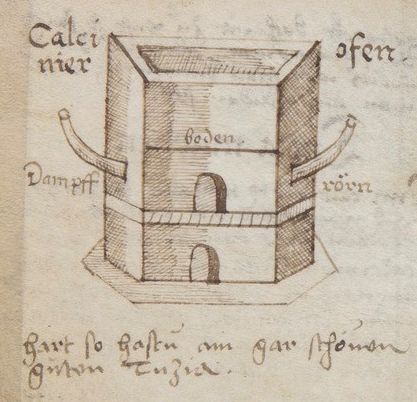 Calci
nier
ofen.
boden.
Dampff
rörn
hart so hastu am gar schönen
guten Tuzia.